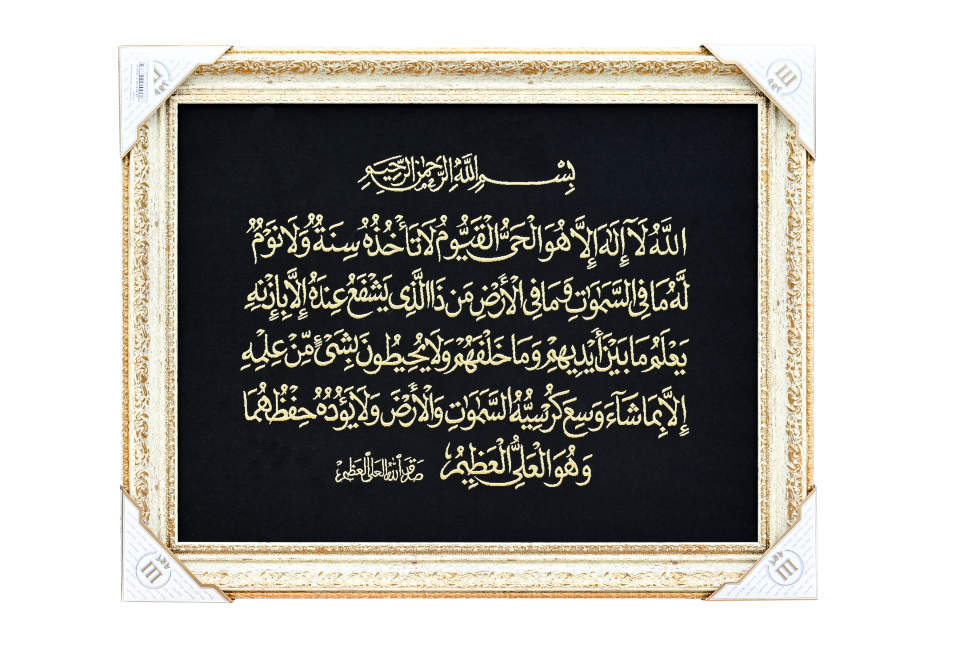 بِسْمِ اللَّهِ الرَّحْمٰنِ الرَّحِيمِ
اللَّهُ لَآ إِلٰهَ إِلَّا هُوَ الْحَيُّ الْقَيُّومُ لَا تَأْخُذُهُ سِنَةٌ وَلَا نَوْمٌ
لَّهُ مَا فِي السَّمٰوٰتِ وَمَا فِي الْأَرْضِ مَن ذَا الَّذِي يَشْفَعُ عِندَهُ إِلَّا بِإِذْنِهِ
يَعْلَمُ مَا بَيْنَ أَيْدِيهِمْ وَمَا خَلْفَهُمْ وَلَا يُحِيطُونَ بِشَيْءٍ مِّنْ عِلْمِهِ
إِلَّا بِمَا شَآءَ وَسِعَ كُرْسِيُّهُ السَّمٰوٰتِ وَالْأَرْضَ وَلَا يَؤُدُهُ حِفْظُهُمَا
وَهُوَ الْعَلِيُّ الْعَظِيمُ صدق الله العلي العظيم
ART
ART
ART
ART